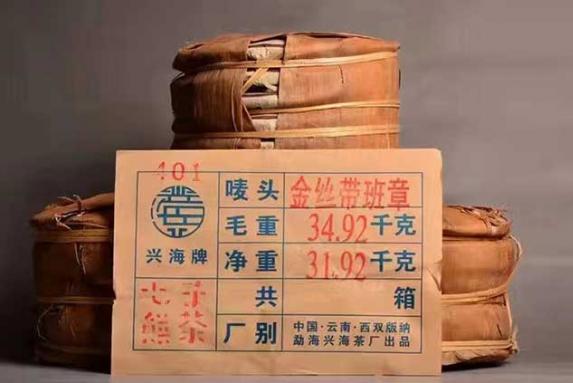 401
兴海牌
唛头 金丝带班章
毛重 34.92 千克
净重 31.92 千克
七子 共 箱
熊茶 厂别 中国·云南·西双版纳
勐海兴海茶厂出品